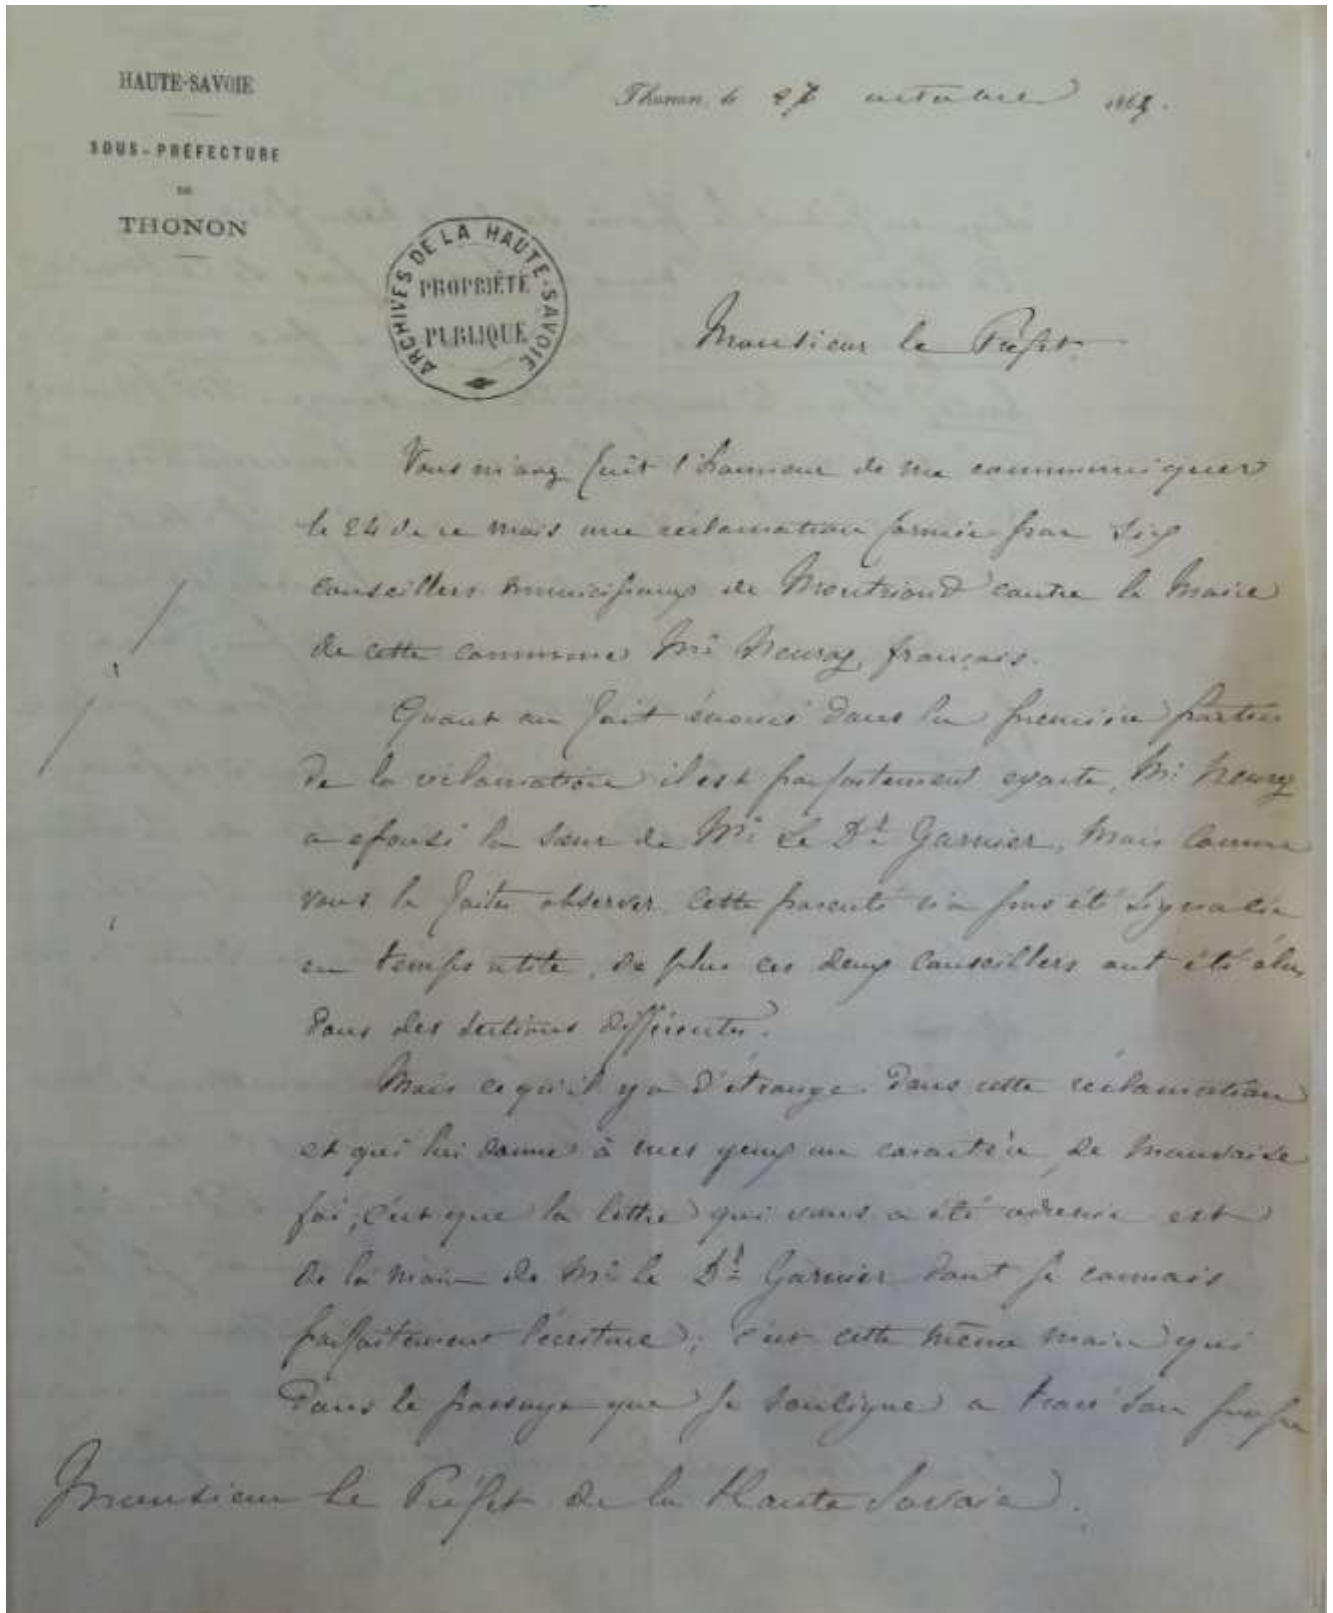 HAUTE-SAVOIE
SOUS-PRÉFECTURE
DE
THONON
Thonon, le 27 octobre 186
ARCHIVES DE LA HAUTE-SAVOIE
PROPRIÉTÉ
PUBLIQUE
Monsieur le Préfet
Vous m'avez fait l'honneur de me communiquer
le 24 de ce mois une réclamation formée par six
conseillers municipaux de Montriond contre le Maire
de cette commune Mr français.
Quant au fait énoncé dans la première partie
de la réclamation il est parfaitement exacte, Mr
a epousé la sœur de Mr Le Dr Garnier, Mais comme
vous le faites observer, cette parenté n'a pas été signalée
en temps utile, de plus ces deux conseillers ont été élus
dans des sections différentes.
Mais ce qu'il y a d'étrange dans cette réclamation
et qui lui donne à mes yeux un caractère de mauvaise
foi, c'est que la lettre qui vous a été adressée est
de la main de Mr le Dr Garnier dont je connais
parfaitement l'écriture; c'est cette même main qui
dans le passage que je souligne a tracé son propre
Monsieur le Préfet de la Haute Savoie.